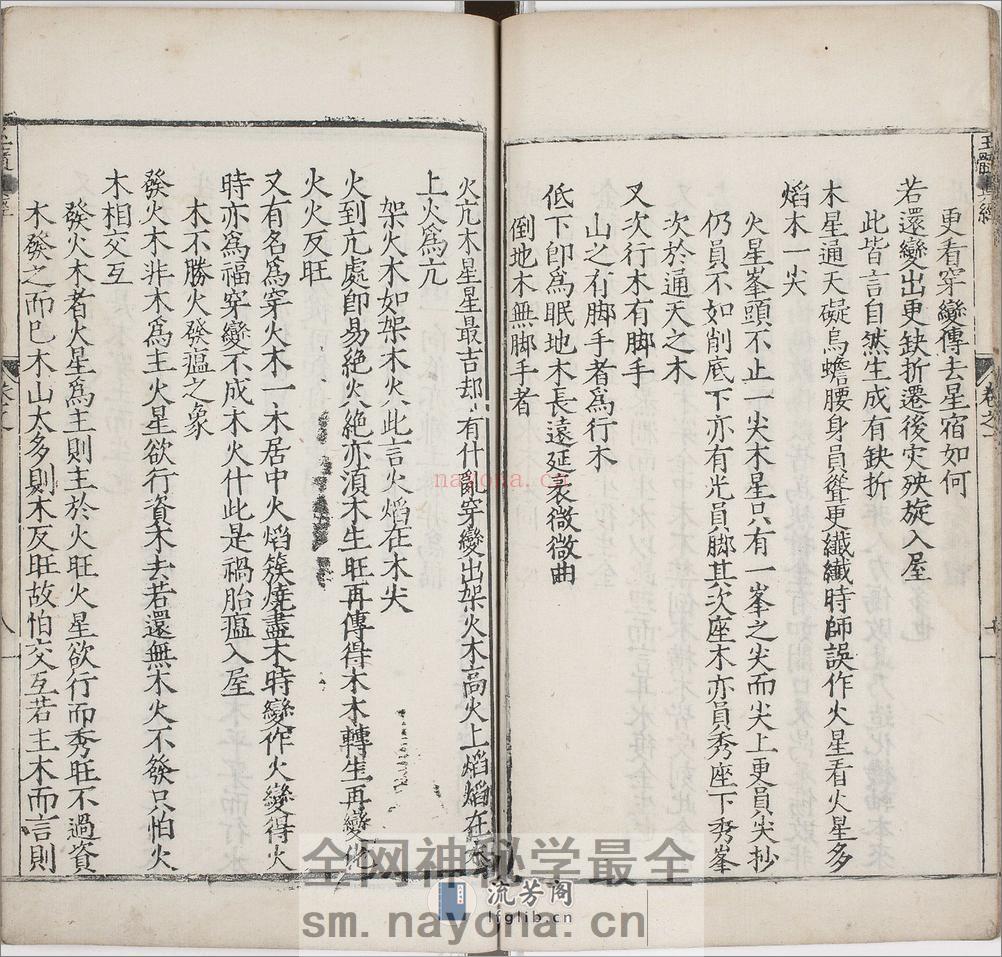 更看穿變傳去星宿如何
若還變出更缺折遷後灾殃旋入屋
此皆言自然生成有缺折
木星通天礙烏蟾腰身員聳更纖纖時師誤作火星看火星多
焰木一尖
火星峯頭不止一尖木星只有一峯之尖而尖上更員尖抄
仍員不如削底下亦有光員脚其次座木亦員秀座下秀峯
次於通天之木
又次行木有脚手
山之有脚手者爲行木
低下卽爲眠地木長遠延袤微微曲
倒地木無脚手者
火亢木星星最吉却有什亂穿變出架火木高火上焰焰在木
上火爲亢
架火木如架木火此言火焰在木尖
火到亢處卽易絶火絶亦湏木生旺再傳得木木轉生再變化
火火反旺
又有名爲穿火木一木居中火焰簇燒盡木時變作火變得火
時亦爲福穿變不成木火什此是禍胎瘟入屋
木不勝火發瘟之象
發火木非木爲主火星欲行資木去若還無木火不發只怕火
木相交互
發火木者火星爲主則主於火旺火星欲行而秀旺不過資
木發之而巳木山太多則木反旺故怕交互若主木而言則
卷之一
全网神秘学最全
流芳阁
lfglib.cn
sm.nayona.cn
nayona.cn